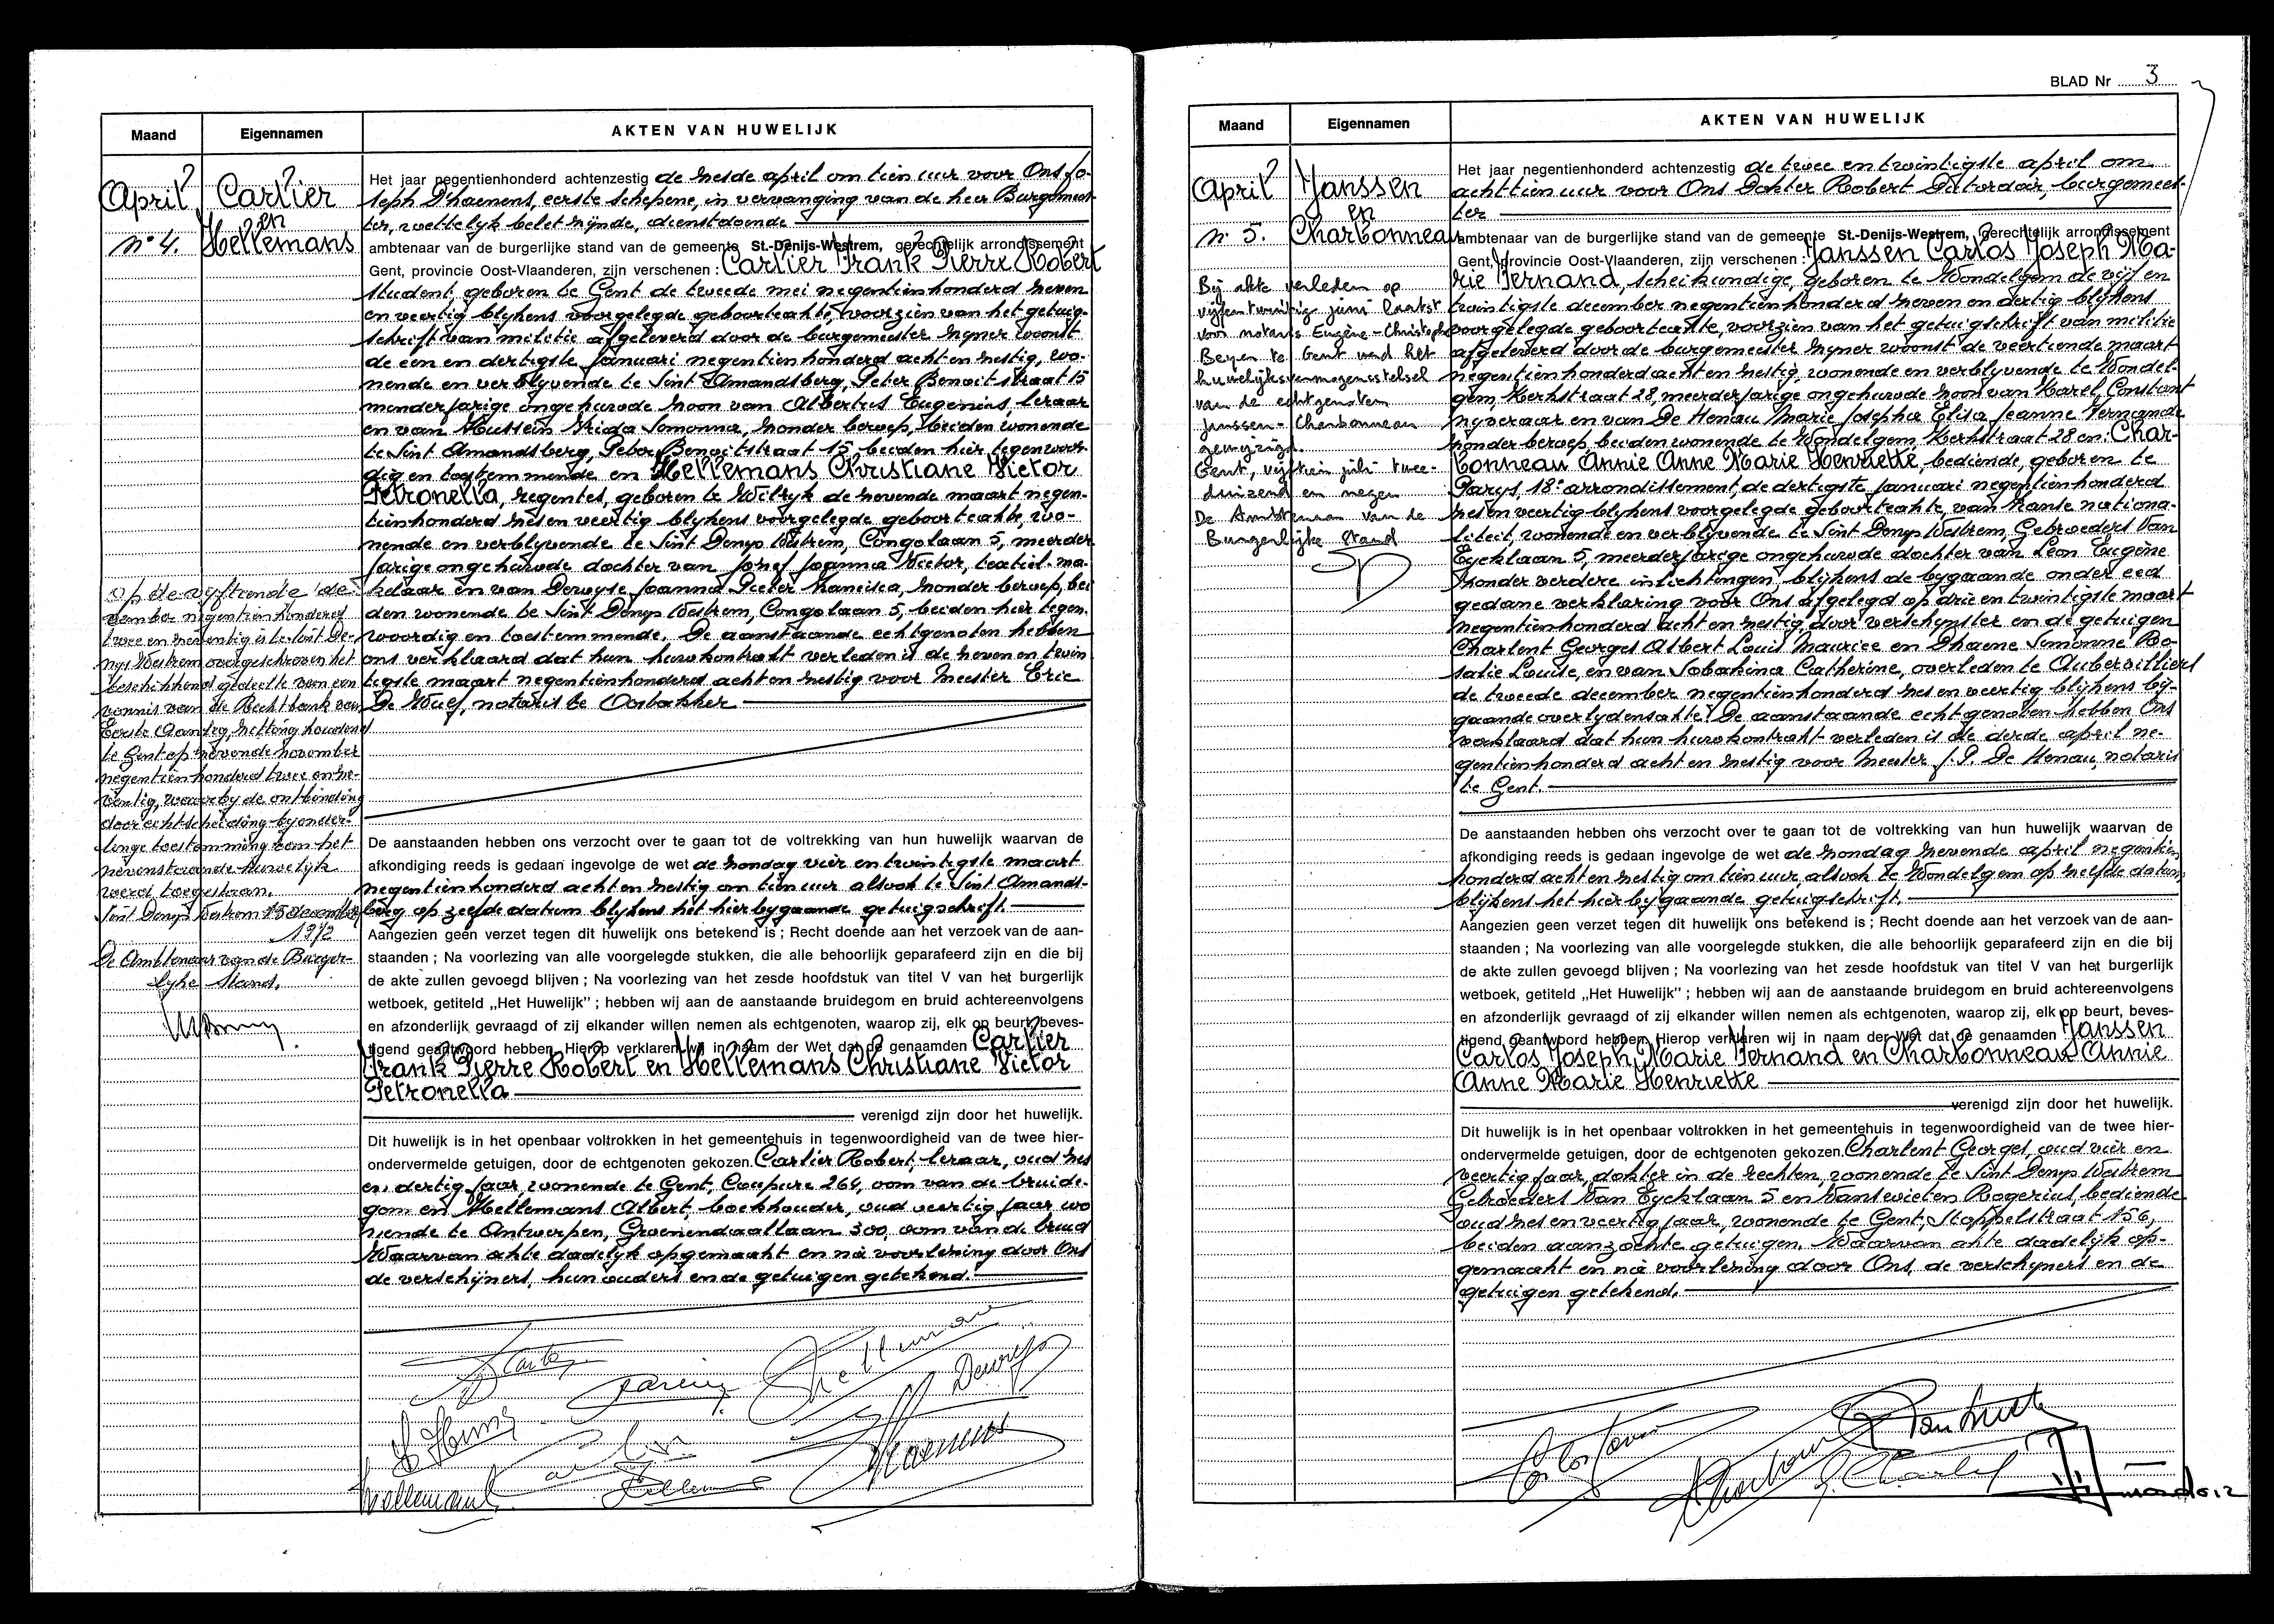 Maand
Eigennamen
AKTEN VAN HUWELIJK
April
Cartier
en
Hellemans
N° 4.
Het jaar negentienhonderd achtenzestig de zesde april om tien uur voor Ons Jo-
seph Dhaenens, eerste schepene, in vervanging van de heer Burgemees-
ter, wettelyk belet zynde, dienstdoende
ambtenaar van de burgerlijke stand van de gemeente St.-Denijs-Westrem, gerechtelijk arrondissement
Gent, provincie Oost-Vlaanderen, zijn verschenen : Cartier Frank Pierre Robert
student, geboren te Gent de tweede mei negentienhonderd zeven
en veertig blykens voorgelegde geboorteakte, voorzien van het getuig-
schrift van militie afgeleverd door de burgemeester zyner woonst
de een en dertigste januari negentienhonderd acht en zestig, wo-
nende en verblyvende te Sint Amandsberg, Peter Benoitstraat 15
minderjarige ongehuwde zoon van Albertus Eugenius, leraar
en van Mussein Frida Simonna, zonder beroep, beiden wonende
te Sint Amandsberg, Peter Benoitstraat 15, beiden hier tegenwoor-
dig en toestemmende en Hellemans Christiane Victor
Petronella, regentes, geboren te Wilryk de zevende maart negen-
tienhonderd zes en veertig blykens voorgelegde geboorteakte, wo-
nende en verblyvende te Sint Denys Westrem, Congolaan 5, meerder
jarige ongehuwde dochter van Jozef Joanna Victor, textiel-ma-
kelaar en van Deruyse Joanna Pieter Francisca, zonder beroep, bei
den wonende te Sint Denys Westrem, Congolaan 5, beiden hier tegen-
woordig en toestemmende. De aanstaande echtgenoten hebben
ons verklaard dat hun huwkontrakt verleden is de zeven en twin
tigste maart negentienhonderd acht en zestig voor Meester Eric
De Wulf, notaris te Oostakker
op de vyftiende de-
cember negentienhonderd
twee en zeventig is te Sint De-
nys Westrem overgeschreven het
beschikkend gedeelte van een
vonnis van de Rechtbank van
Eerste Aanleg, zitting houdend
te Gent op zevende november
negentienhonderd twee en ze-
ventig, waarby de ontbinding
door echtscheiding by onder-
linge toestemming van het
nevenstaande huwelyk
werd toegestaan.
Sint Denys Westrem 15 december
1972
De Ambtenaar van de Burger-
lyke Stand,
De aanstaanden hebben ons verzocht over te gaan tot de voltrekking van hun huwelijk waarvan de
afkondiging reeds is gedaan ingevolge de wet de zondag vier en twintigste maart
negentienhonderd acht en zestig om tien uur alsook te Sint Amands-
berg op zelfde datum blykens het hierbygaande getuigschrift.
Aangezien geen verzet tegen dit huwelijk ons betekend is ; Recht doende aan het verzoek van de aan-
staanden ; Na voorlezing van alle voorgelegde stukken, die alle behoorlijk geparafeerd zijn en die bij
de akte zullen gevoegd blijven ; Na voorlezing van het zesde hoofdstuk van titel V van het burgerlijk
wetboek, getiteld „Het Huwelijk" ; hebben wij aan de aanstaande bruidegom en bruid achtereenvolgens
en afzonderlijk gevraagd of zij elkander willen nemen als echtgenoten, waarop zij, elk op beurt, beves-
tigend geantwoord hebben. Hierop verklaren wij in naam der Wet dat de genaamden Cartier
Frank Pierre Robert en Hellemans Christiane Victor
Petronella
verenigd zijn door het huwelijk.
Dit huwelijk is in het openbaar voltrokken in het gemeentehuis in tegenwoordigheid van de twee hier-
ondervermelde getuigen, door de echtgenoten gekozen. Cartier Robert, leraar, oud zes
en dertig jaar, wonende te Gent, Coupure 264, oom van de bruide-
gom en Hellemans Albert, boekhouder, oud veertig jaar wo
nende te Antwerpen, Groenendaallaan 300, oom van de bruid
Waarvan akte dadelyk opgemaakt en na voorlezing door Ons
de verschijners, hun ouders en de getuigen getekend.
BLAD Nr 3
Maand
Eigennamen
AKTEN VAN HUWELIJK
April
Janssen
en
Charbonneau
N° 5.
Het jaar negentienhonderd achtenzestig de twee en twintigste april om
achttien uur voor Ons Dokter Robert Paturdoir, burgemees-
ter
ambtenaar van de burgerlijke stand van de gemeente St.-Denijs-Westrem, Gerechtelijk arrondissement
Gent, provincie Oost-Vlaanderen, zijn verschenen : Janssen Carlos Joseph Ma-
rie Fernand, scheikundige, geboren te Wondelgem de vijf en
twintigste december negentienhonderd zeven en dertig blykens
voorgelegde geboorteakte, voorzien van het getuigschrift van militie
afgeleverd door de burgemeester zyner woonst de veertiende maart
negentienhonderd acht en zestig, wonende en verblyvende te Wondel-
gem, Kerkstraat 28, meerderjarige ongehuwde zoon van Karel Constant
nyveraar en van De Henau Marie Josepha Elisa Jeanne Fernande
zonder beroep beiden wonende te Wondelgem, Kerkstraat 28 en: Char-
bonneau Annie Anne Marie Henriette, bediende, geboren te
Parys, 18e arrondissement, de dertigste januari negentienhonderd
zes en veertig blykens voorgelegde geboorteakte, van franse nationa-
liteit, wonende en verblyvende te Sint Denys Westrem, Gebroeders Van
Eycklaan 5, meerderjarige ongehuwde dochter van Leon Eugène
zonder verdere inlichtingen, blykens de bygaande onder eed
gedane verklaring voor Ons afgelegd op drie en twintigste maart
negentienhonderd acht en zestig, door verschynster en de getuigen
Charlent Georges Albert Louis Maurice en Dhaene Simonne Ro-
salie Louise, en van Sobakina Catherine, overleden te Aubervilliers
de tweede december negentienhonderd zes en veertig blykens by-
gaande overlydensakte. De aanstaande echtgenoten hebben Ons
verklaard dat hun huwkontrakt verleden is de derde april ne-
gentienhonderd acht en zestig voor Meester J. P. De Henau, notaris
te Gent.
Bij akte verleden op
vijfentwintig juni laatst
voor notaris Eugène-Christophe
Beyen te Gent werd het
huwelijksvermogensstelsel
van de echtgenoten
Janssen - Charbonneau
gewijzigd.
Gent, vijftien juli twee-
duizend en negen
De Ambtenaar van de
Burgerlijke Stand
De aanstaanden hebben ons verzocht over te gaan tot de voltrekking van hun huwelijk waarvan de
afkondiging reeds is gedaan ingevolge de wet de zondag zevende april negentien
honderd acht en zestig om tien uur, alsook te Wondelgem op zelfde datum,
blykens het hierbygaande getuigschrift.
Aangezien geen verzet tegen dit huwelijk ons betekend is ; Recht doende aan het verzoek van de aan-
staanden ; Na voorlezing van alle voorgelegde stukken, die alle behoorlijk geparafeerd zijn en die bij
de akte zullen gevoegd blijven ; Na voorlezing van het zesde hoofdstuk van titel V van het burgerlijk
wetboek, getiteld „Het Huwelijk" ; hebben wij aan de aanstaande bruidegom en bruid achtereenvolgens
en afzonderlijk gevraagd of zij elkander willen nemen als echtgenoten, waarop zij, elk op beurt, beves-
tigend geantwoord hebben. Hierop verklaren wij in naam der Wet dat de genaamden Janssen
Carlos Joseph Marie Fernand en Charbonneau Annie
Anne Marie Henriette
verenigd zijn door het huwelijk.
Dit huwelijk is in het openbaar voltrokken in het gemeentehuis in tegenwoordigheid van de twee hier-
ondervermelde getuigen, door de echtgenoten gekozen. Charlent Georges, oud vier en
veertig jaar, dokter in de rechten, wonende te Sint Denys Westrem
Gebroeders Van Eycklaan 5 en Vanswieten Rogerius, bediende
oud zes en veertig jaar, wonende te Gent, Stoppelstraat 156,
beiden aanzochte getuigen. Waarvan akte dadelijk op-
gemaakt en na voorlezing door Ons, de verschyners en de
getuigen getekend.